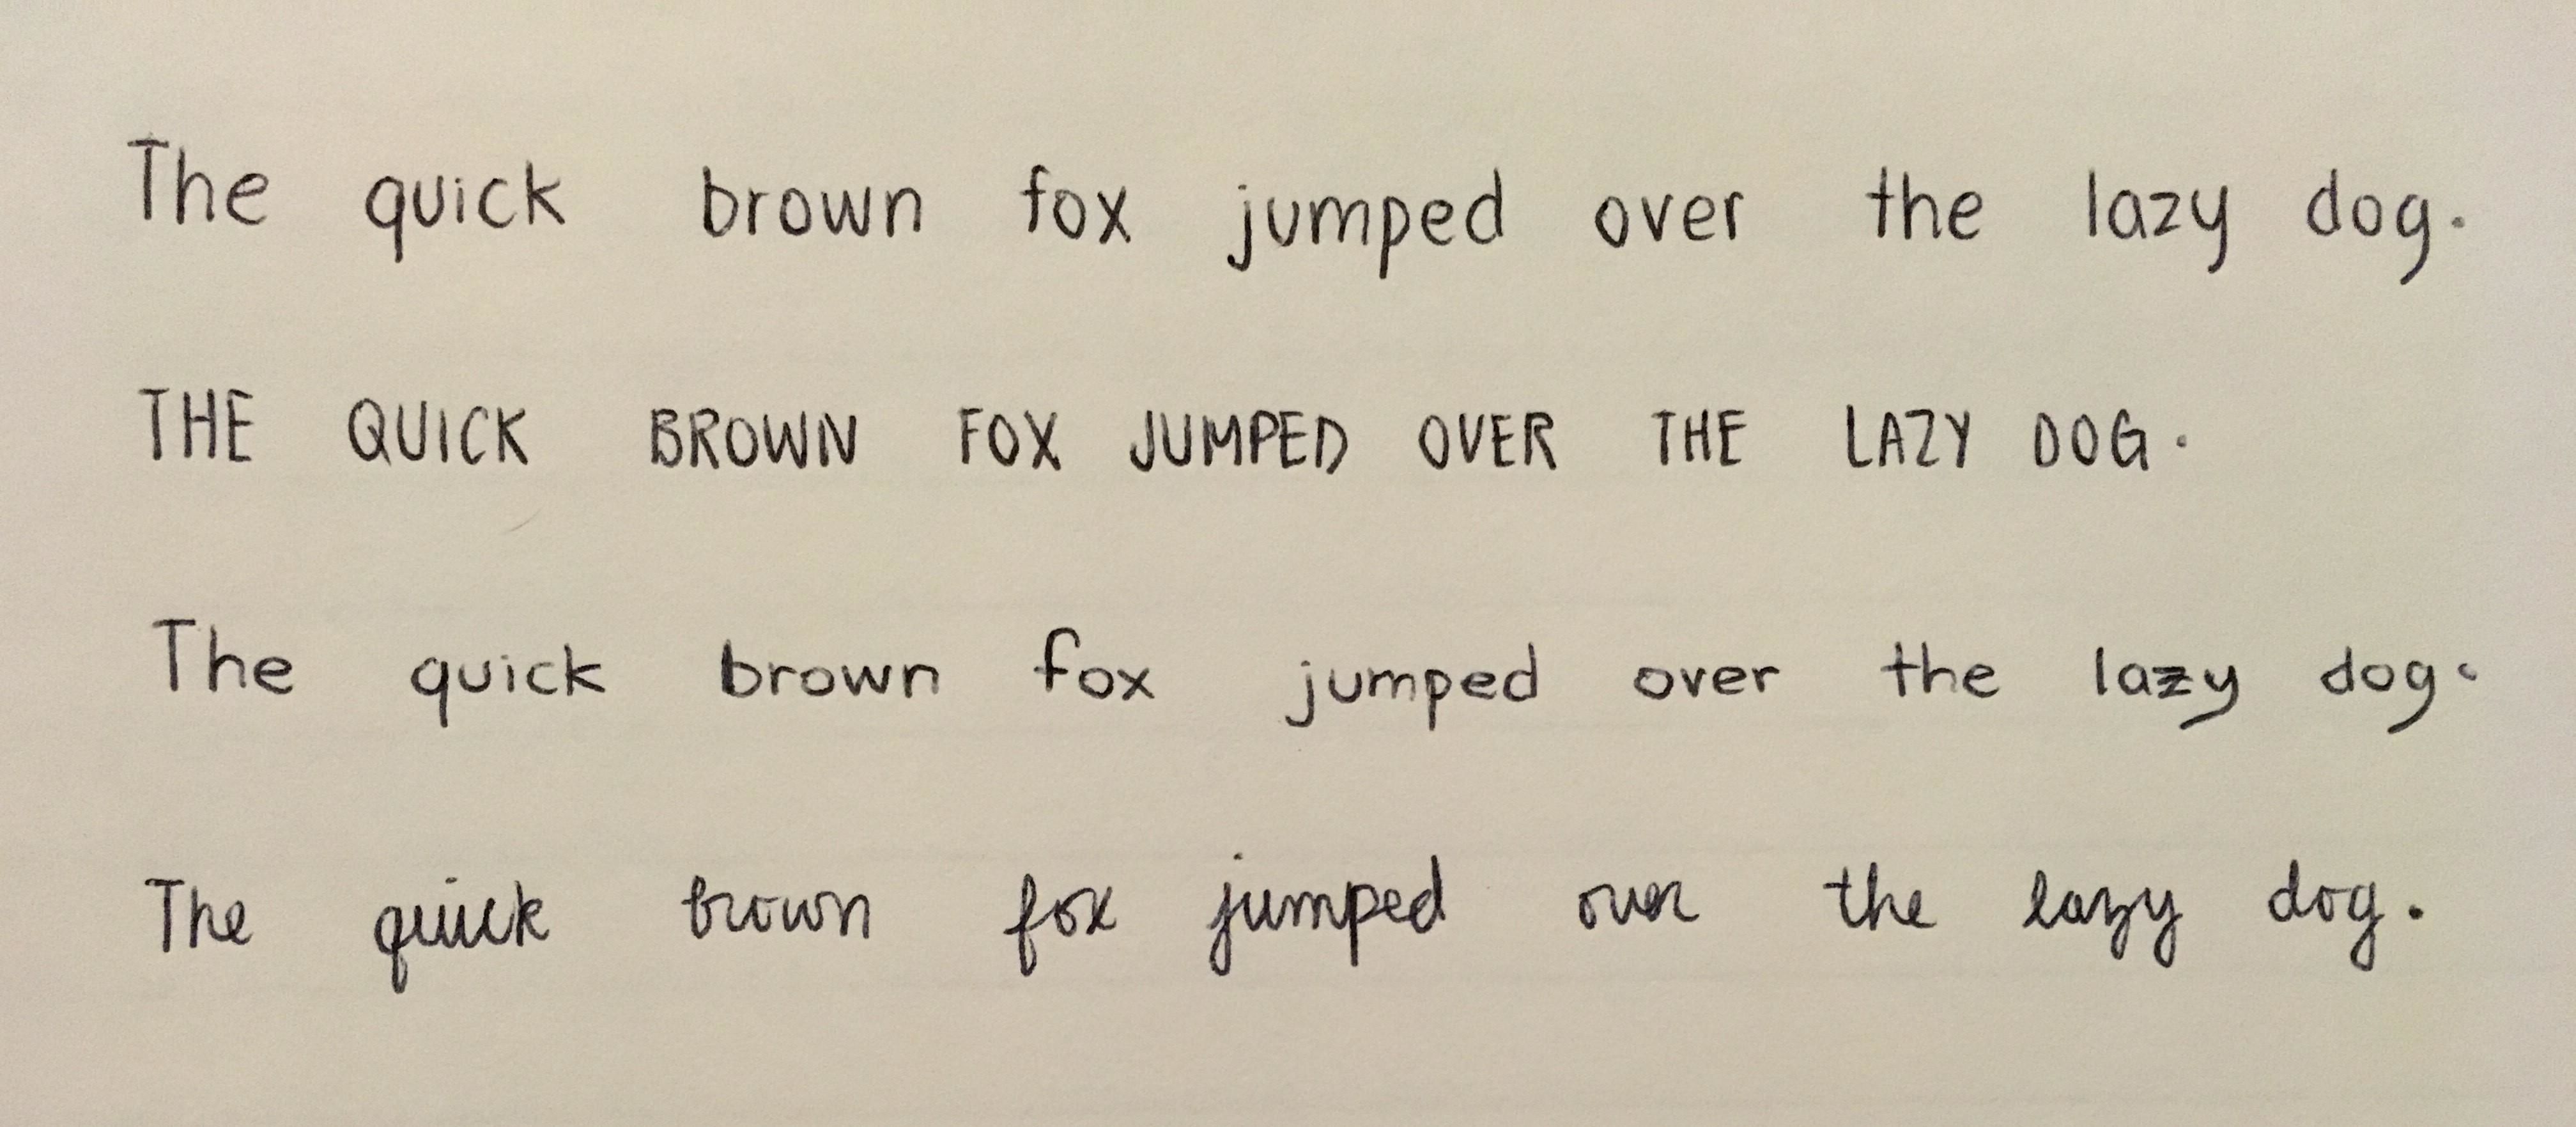 The quick brown fox jumped over the lazy dog.
THE QUICK BROWN FOX JUMPED OVER THE LAZY DOG.
The quick brown fox jumped over the lazy dog.
The quick brown fox jumped over the lazy dog.